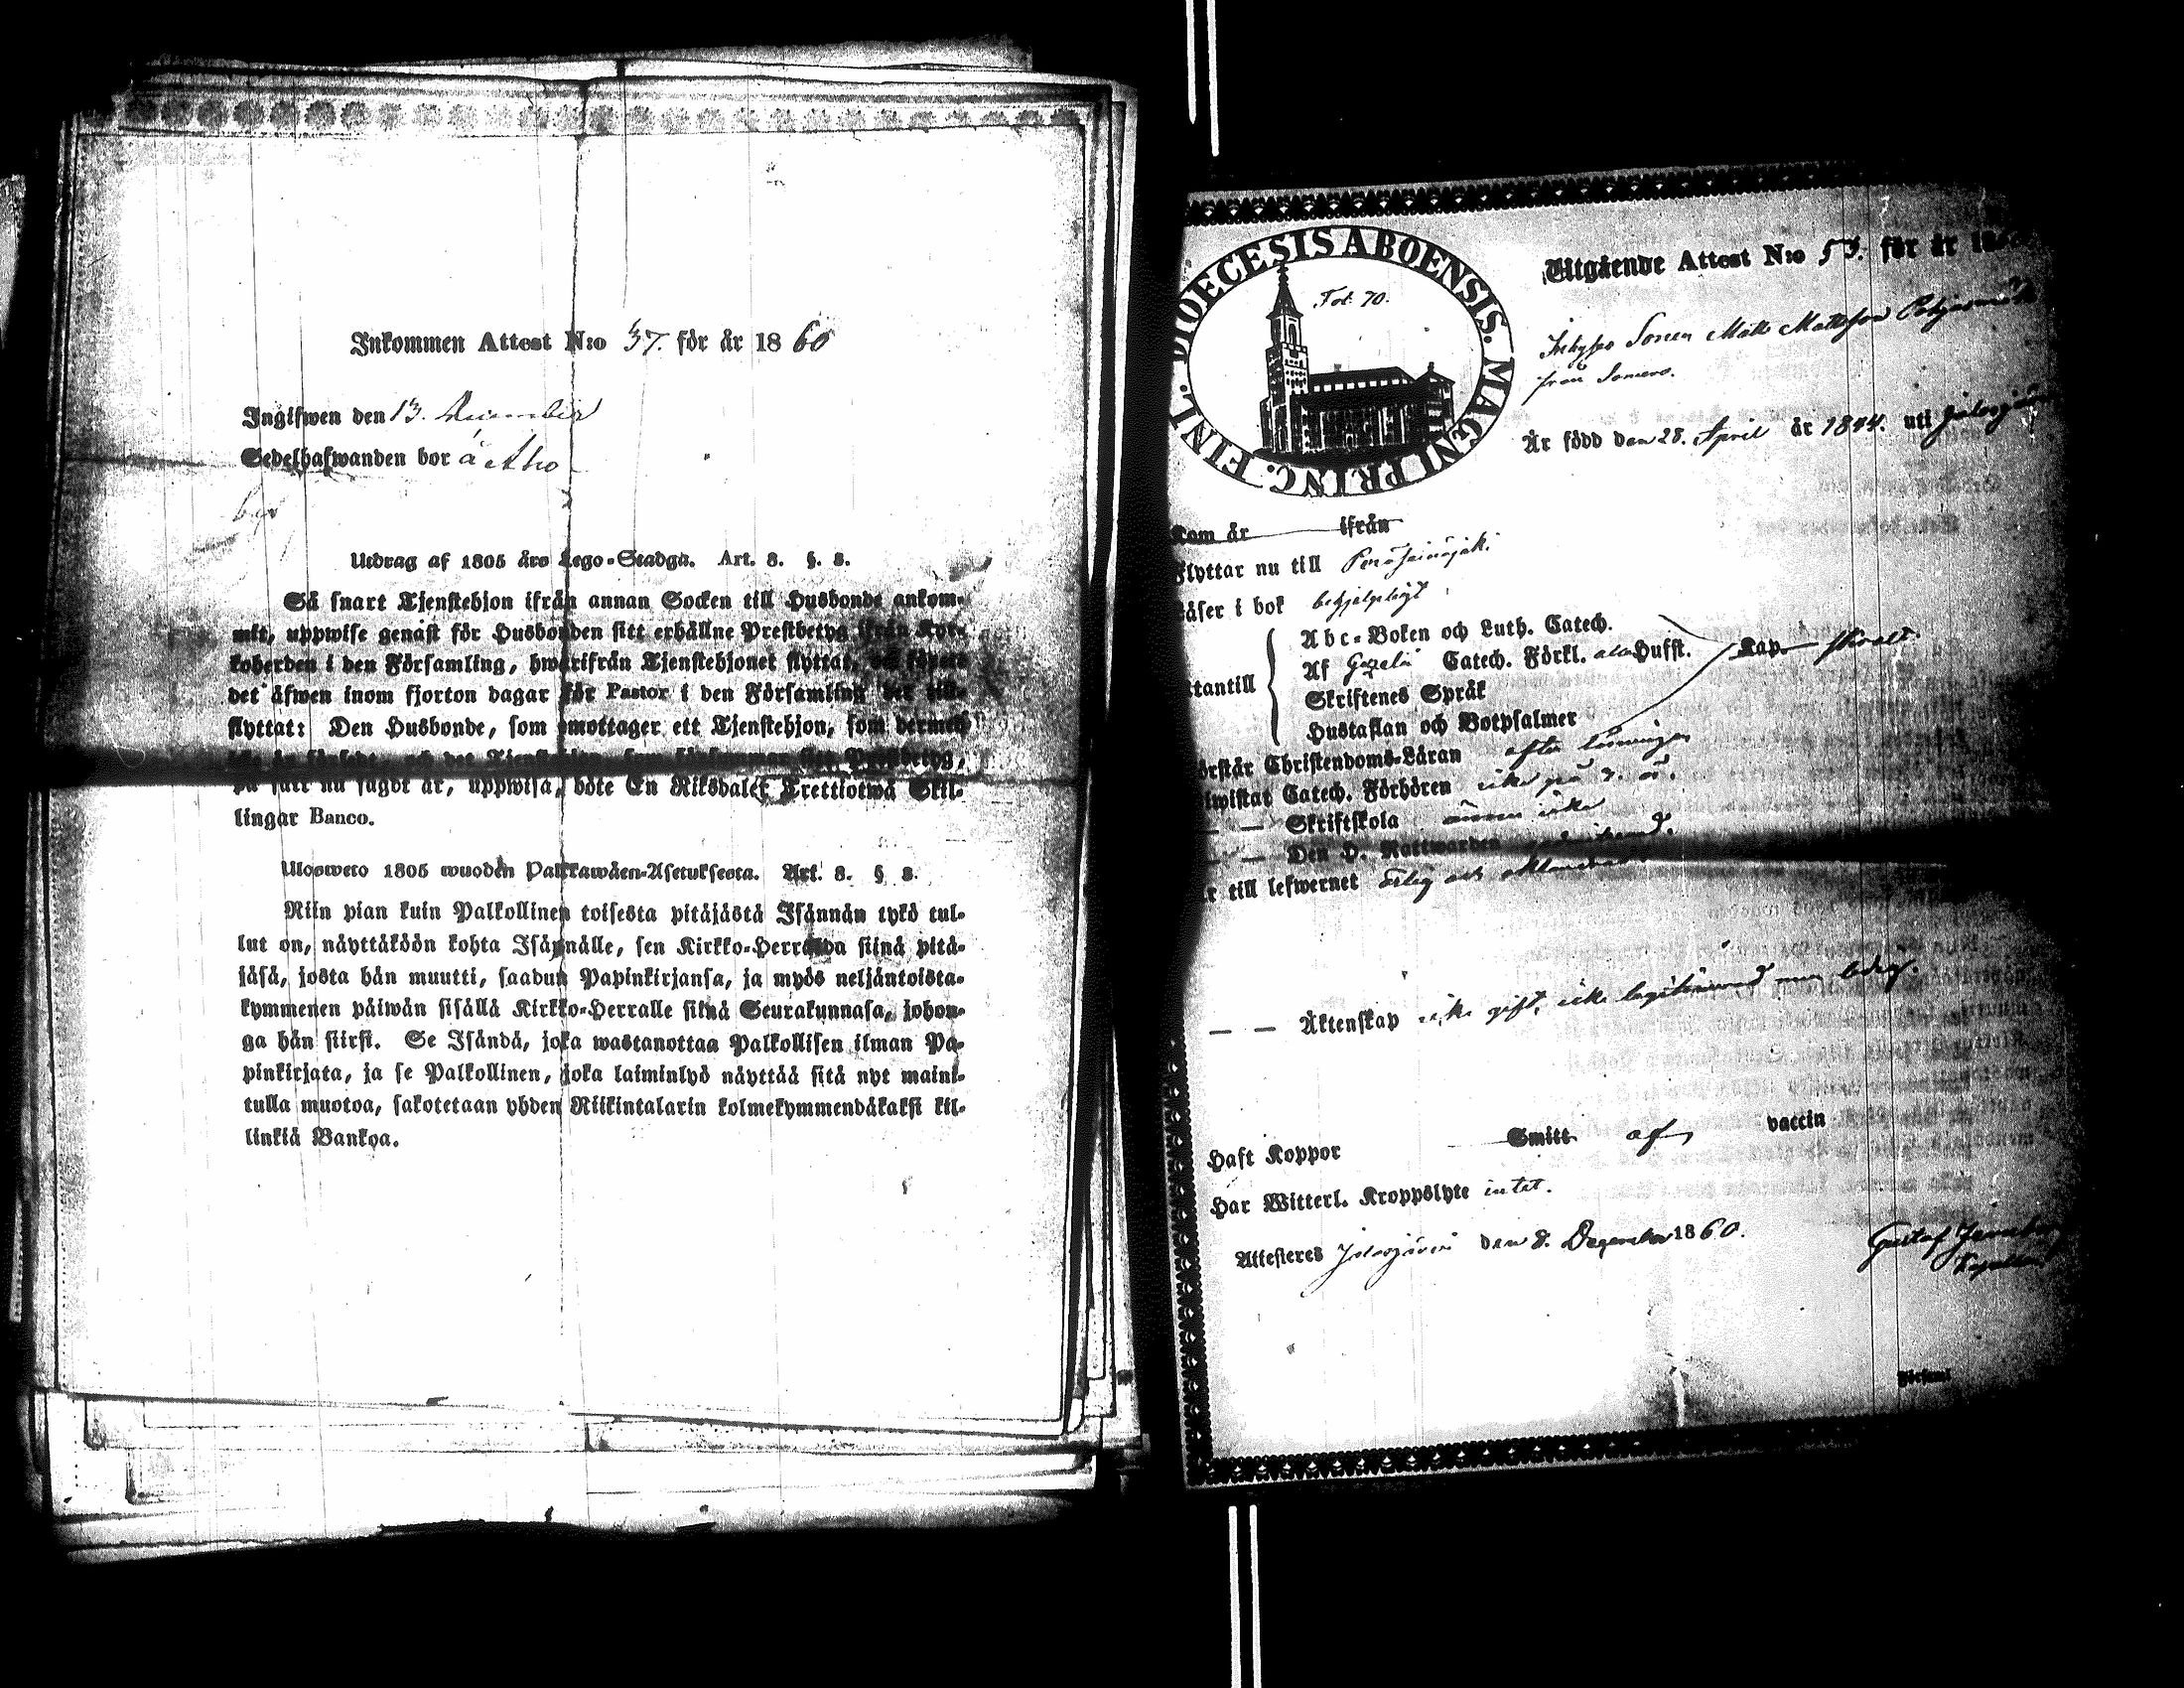 Inkommen Attest N:o 37. för år 1860
Ingifwen den 13. December
Sedelhafwanden bor å Aho
by
Utdrag af 1805 års Lego-Stadga. Art. 8. §. 8.
Så snart Tjenstehjon ifrån annan Socken till Husbonde ankom-
mit, uppwise genast för Husbonden sitt erhållne Prestbetyg ifrån Kyr-
koherden i den Församling, hwarifrån Tjenstehjonet flyttat, och förete
det äfwen inom fjorton dagar för Pastor i den Församling der till-
flyttat: Den Husbonde, som emottager ett Tjenstehjon, som dermed
på sätt nu sagdt är, uppwisa, böte En Riksdaler Trettiotwå Skil-
lingar Banco.
Ulosweto 1805 wuoden Palkkawäen-Asetuksesta. Art. 8. § 8.
Niin pian kuin Palkollinen toisesta pitäjästä Isännän tykö tul-
lut on, näyttäköön kohta Isännälle, sen Kirkko-Herralda siinä pitä-
jäsä, josta hän muutti, saadun Papinkirjansa, ja myös neljäntoista-
kymmenen päiwän sisällä Kirkko-Herralle siinä Seurakunnasa, johon-
ga hän siirsi. Se Isändä, joka wastanottaa Palkollisen ilman Pa-
pinkirjata, ja se Palkollinen, joka laiminlyö näyttää sitä nyt maini-
tulla muotoa, sakotetaan yhden Riikintalarin kolmekymmendäkaksi kil-
linkiä Bankoa.
DIOECESIS ABOENSIS. MAGNI PRINC. FINL.
Fol. 70.
Utgående Attest N:o 53. för år 18
Inhyses Sonen Matts Mattsson
från Somero.
Är född den 28. April år 1844. uti Jalasjärvi
Kom år ifrån
Flyttar nu till Peräseinäjoki.
Läser i bok behjelpligt
Utantill
Abc-Boken och Luth. Catech.
Af Gezelii Catech. Förkl. utan Hufst. Kap.
Skriftenes Språk
Hustaflan och Botpsalmer
Förstår Christendoms-Läran efter läsningen
Bewistat Catech. Förhören icke på 2. år.
— — Skriftskola ännu icke
— — Den H. Nattwarden
Är till lefwernet ärlig och
— — Äktenskap icke gift, icke legitimerad
Haft Koppor Smitt af vaccin
Har Witterl. Kroppslyte intet.
Attesteras Jalasjärvi den 8. December 1860.
Gustaf
Kapellan
Församl